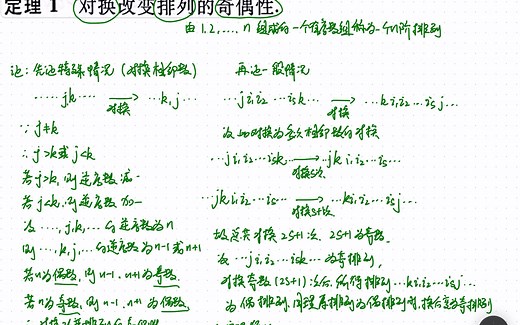 定理 1 对换改变排列的奇偶性.
由 1,2,....n 组成的一个有序数组称为一个n阶排列
证: 先证特殊情况 (对换相邻数)
.....jk..... 对换→ ...k,j...
∵ j≠k
∴ j>k或j<k
若j>k, 则逆序数减一
若j<k, 则逆序数加一
设...,j,k,...的逆序数为n
则...,k,j,...的逆序数为n-1或n+1
若n为偶数, 则n-1、n+1为奇数
若n为奇数, 则n-1、n+1为偶数
再证一般情况
...ji₁i₂...isk... 对换→ ...ki₁i₂...isj...
设此对换为多次相邻数的对换
...ji₁i₂...isk... 对换s次→ ...jki₁i₂...is...
...jki₁i₂...is... 对换s+1次→ ...ki₁i₂...isj...
故总共对换2s+1次, 2s+1为奇数.
设...ji₁i₂...isk...为奇排列,
对换奇数(2s+1)次后, 所得排列...ki₁i₂...isj...
为偶排列, 同理原排列为偶排列时, 换后变为奇排列